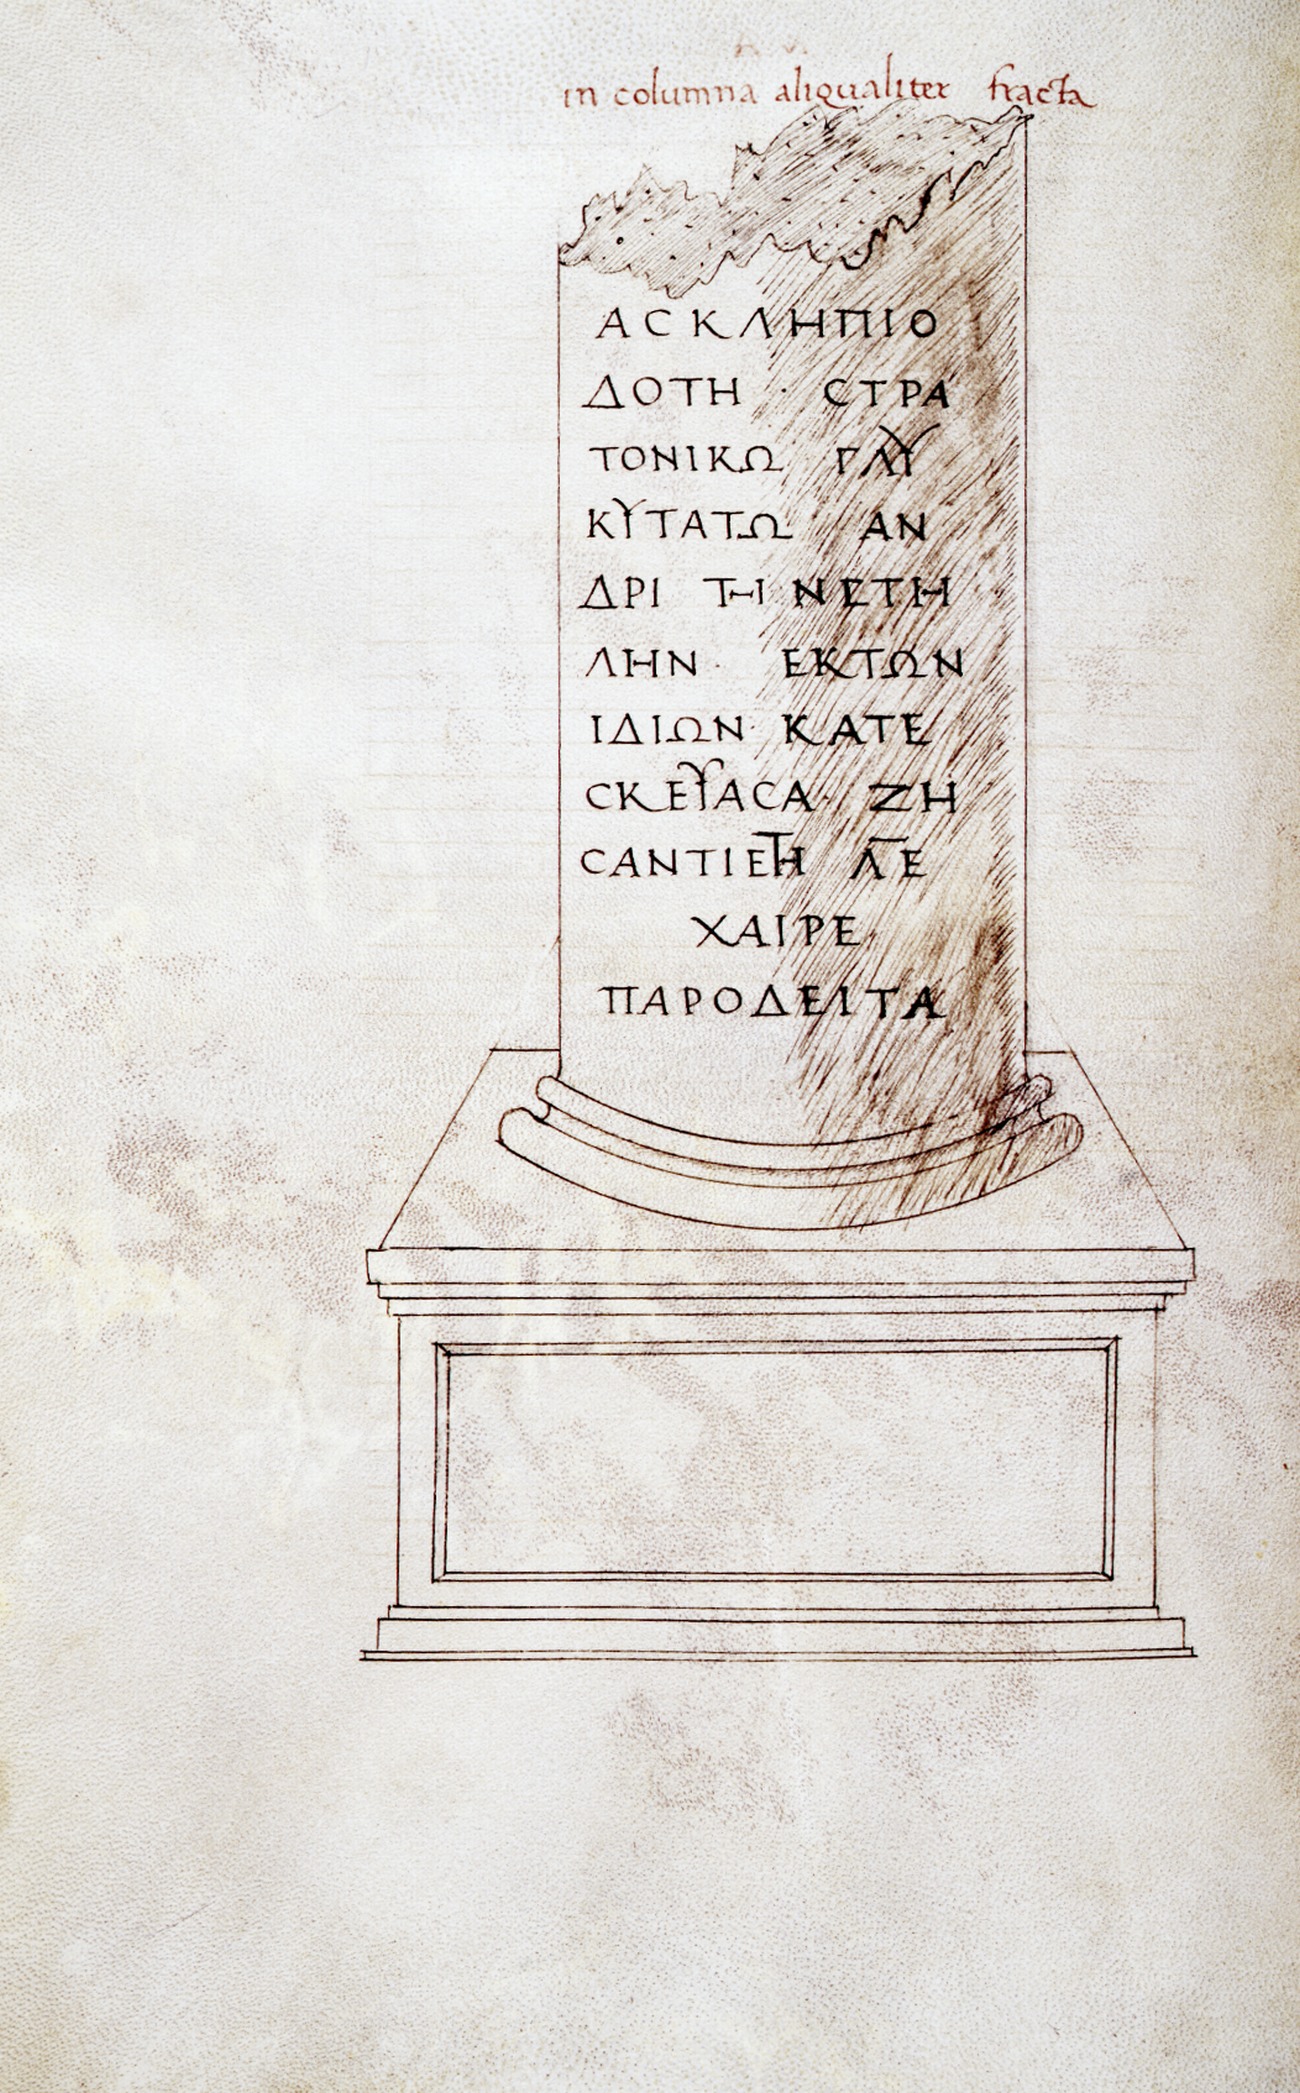 in columna aliqualiter fracta
ΑϹΚΛΗΠΙΟ
ΔΟΤΗ · ϹΤΡΑ
ΤΟΝΙΚΩ ΓΛΥ
ΚΥΤΑΤΩ ΑΝ
ΔΡΙ ΤΗΙΝΕΤΗ
ΛΗΝ · ΕΚΤΩΝ
ΙΔΙΩΝ ΚΑΤΕ
ϹΚΕΥΑϹΑ · ΖΗ
ϹΑΝΤΙΕΤΗ Λ̅Ε
ΧΑΙΡΕ
ΠΑΡΟΔΕΙΤΑ